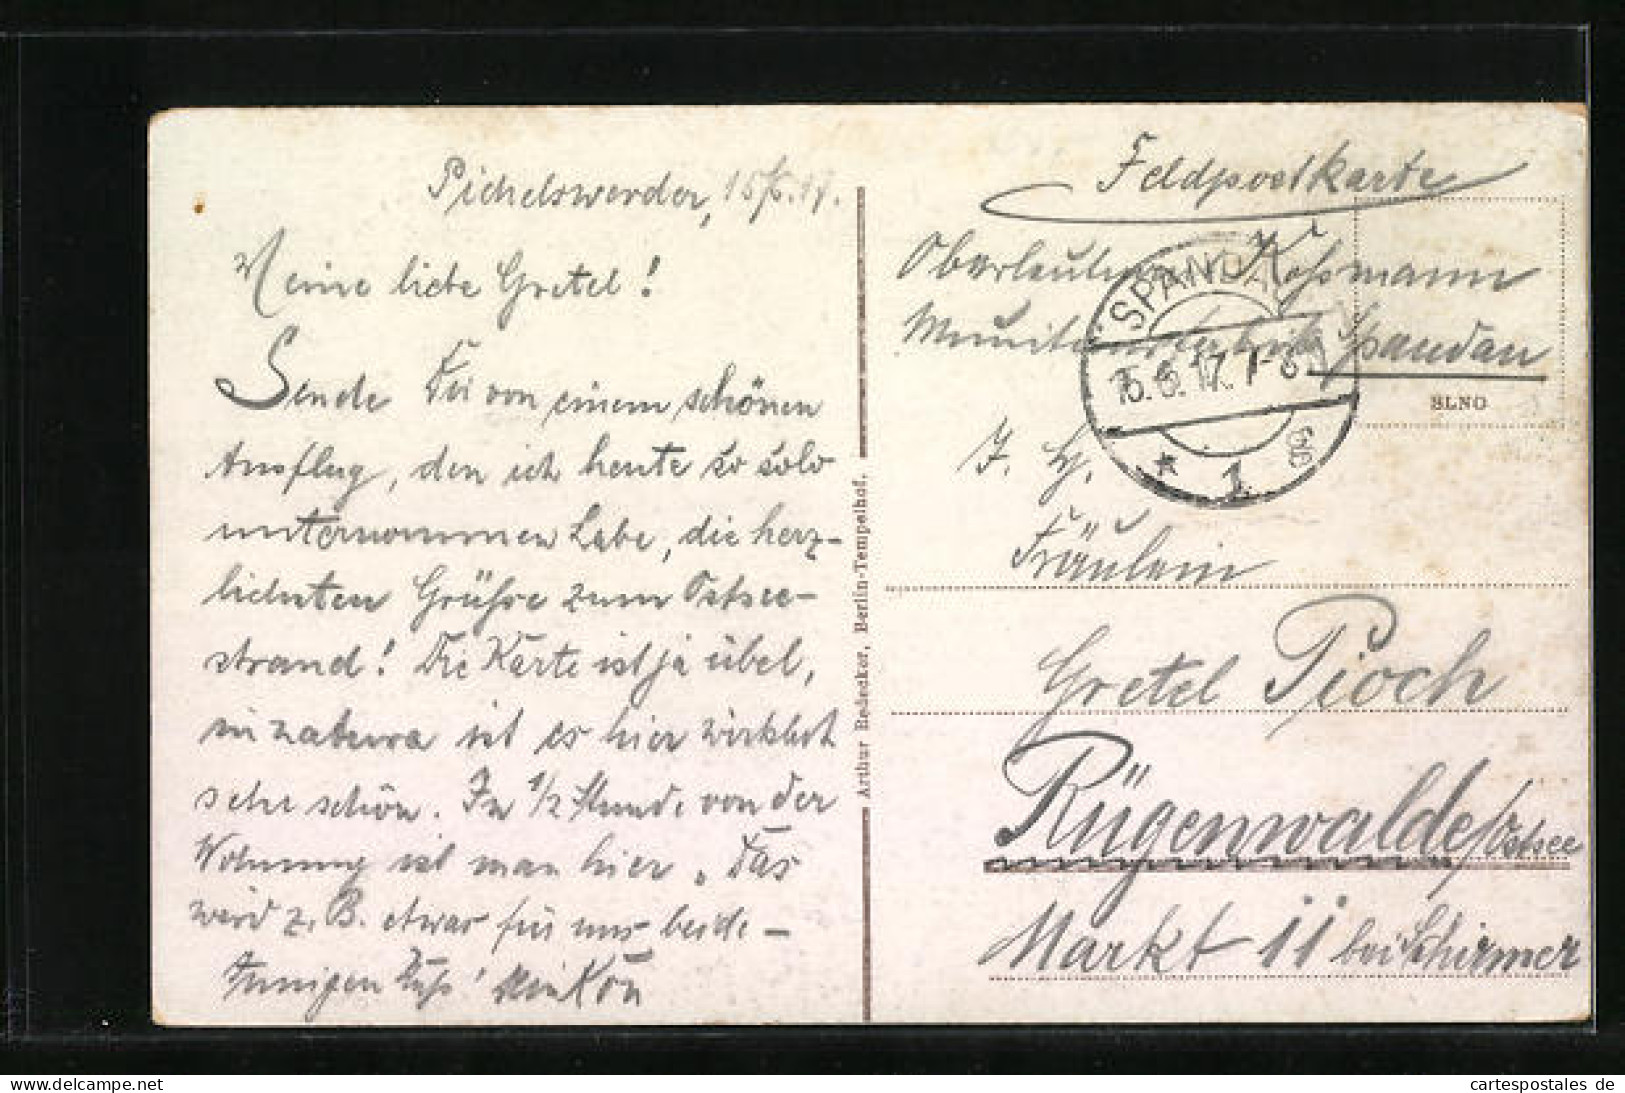 Pichelswerder, 15/6.17.
Meine liebe Gretel!
Sende Dir von einem schönen
Ausflug, den ich heute so solo
unternommen habe, die herz-
lichsten Grüße zum Ostsee-
strand! Die Karte ist ja übel,
in natura ist es hier wirklich
sehr schön. In 1/2 Stunde von der
Wohnung ist man hier. Das
wird z. B. etwas für uns beide –
Innigen Kuß! Dein
Arthur Redecker, Berlin-Tempelhof.
Feldpostkarte
Oberleutnant Roßmann
Munitionsfabrik Spandau
SPANDAU
15.6.17. 7-8
* 1
BLNO
Fräulein
Gretel Pioch
Rügenwalde/Ostsee
Markt 11 bei Schirmer
hinzukommen.de
cartespostales de